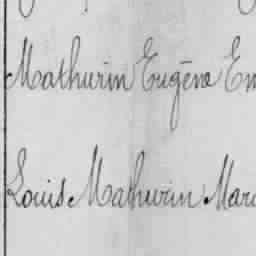 Mathurin Eugène Em
Louis Mathurin Marc